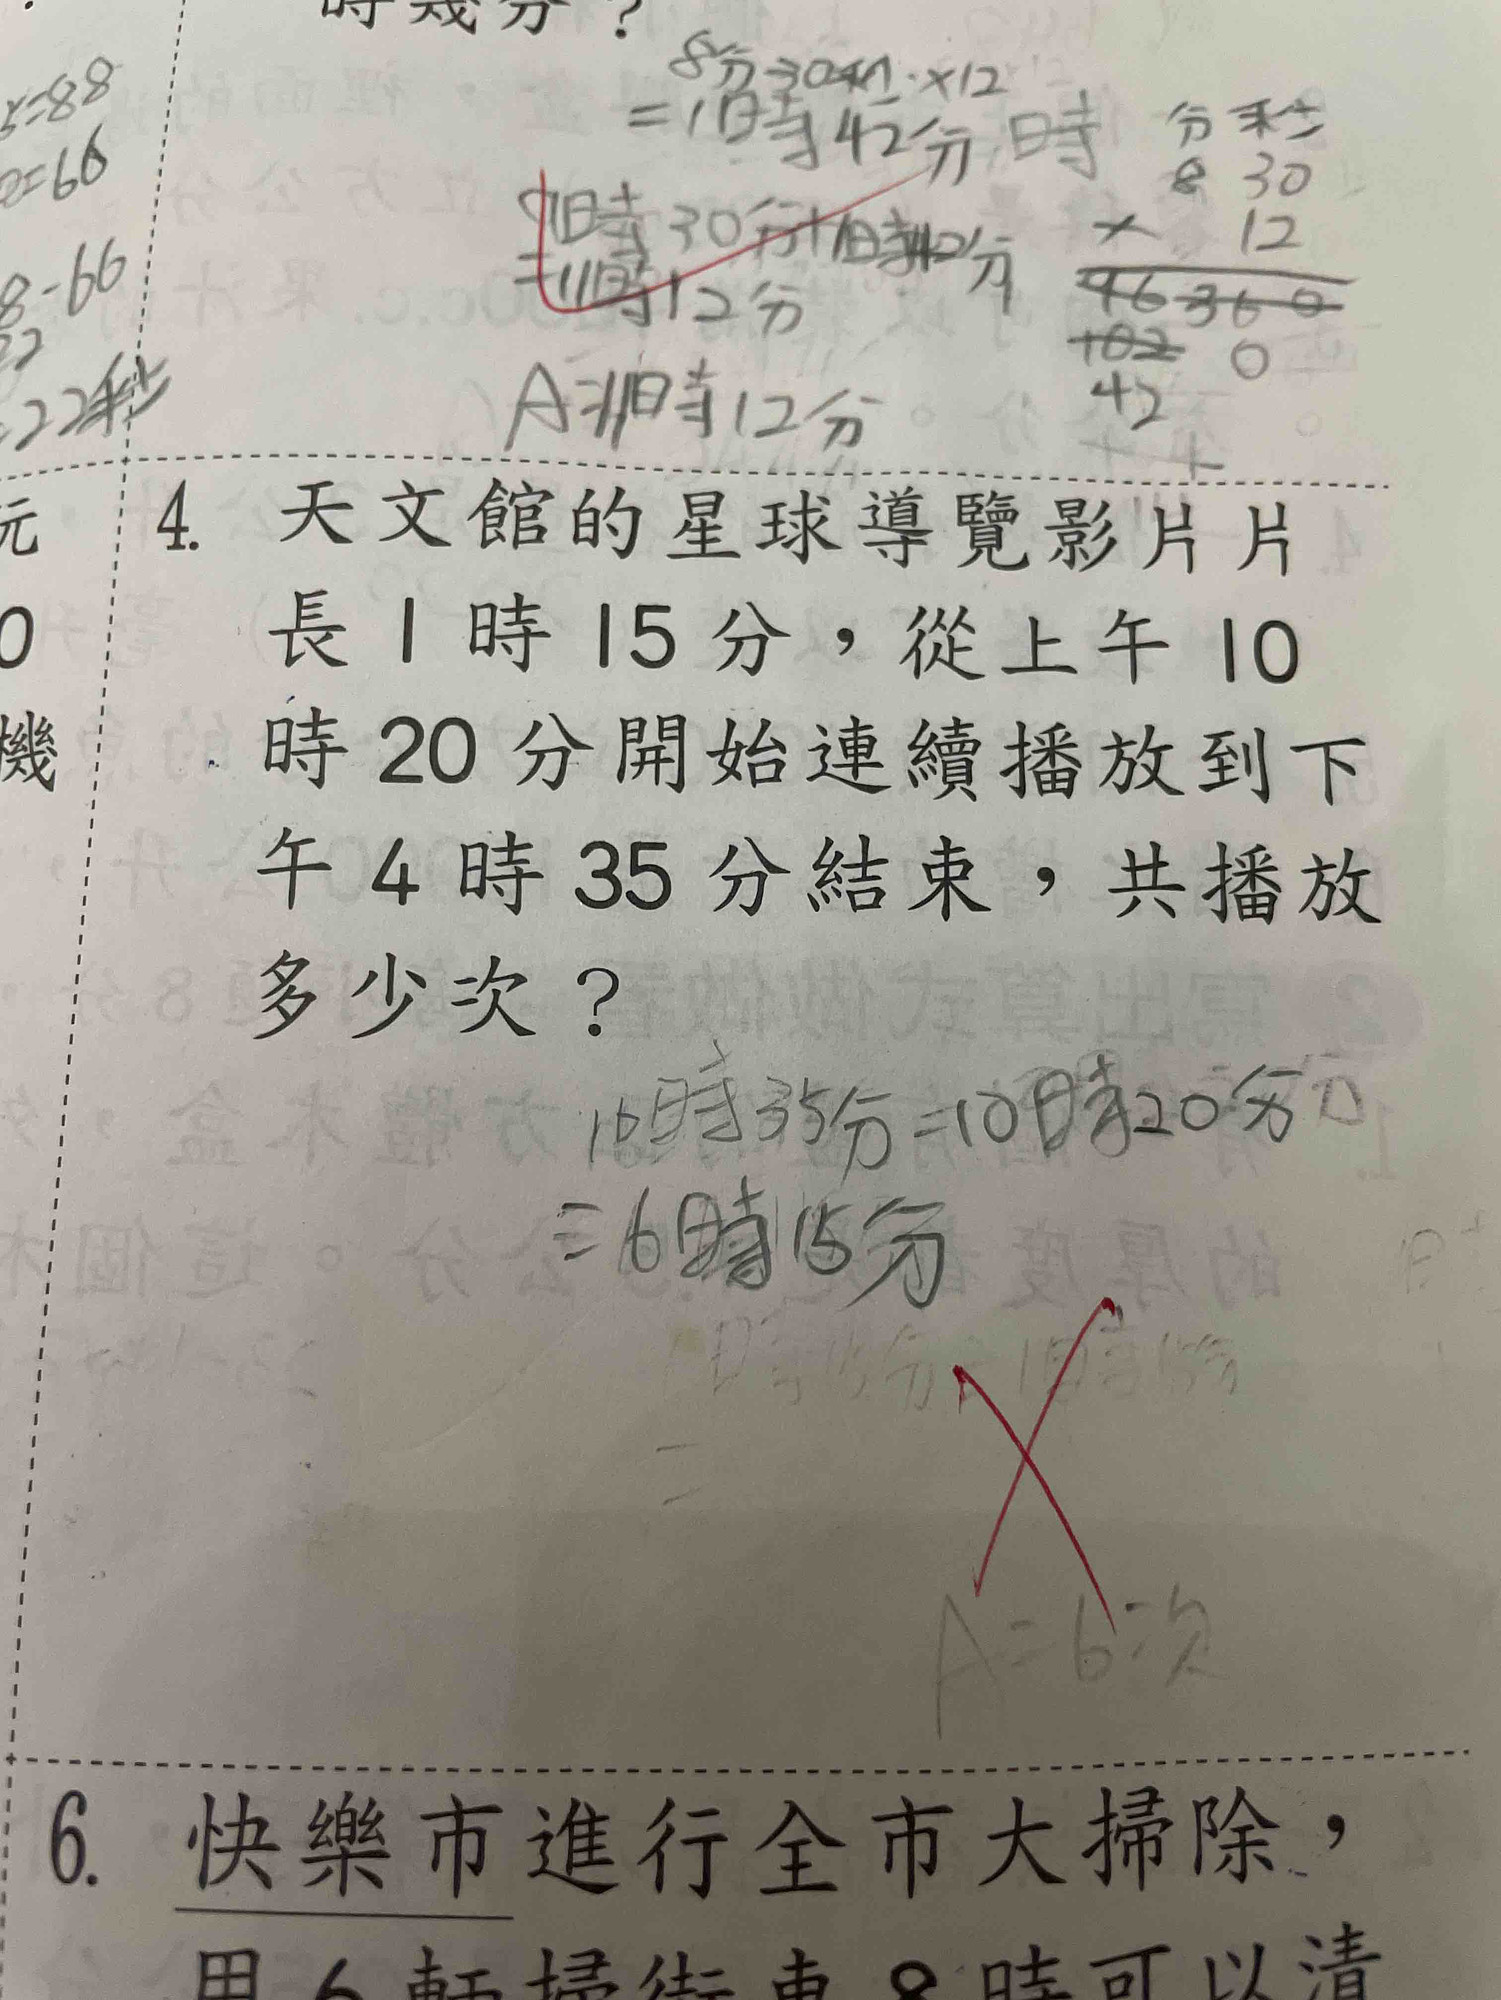 時幾分？
8分30秒×12
=1時42分
分 秒
8 30
× 12
96 360
102 0
42
9時30分+1時42分
=11時12分
A=11時12分
=88
=66
8-66
22秒
元
0
機
4. 天文館的星球導覽影片片
長1時15分，從上午10
時20分開始連續播放到下
午4時35分結束，共播放
多少次？
16時35分=10時20分
=6時15分
A=6次
6. 快樂市進行全市大掃除，
用6輛掃街車8時可以清